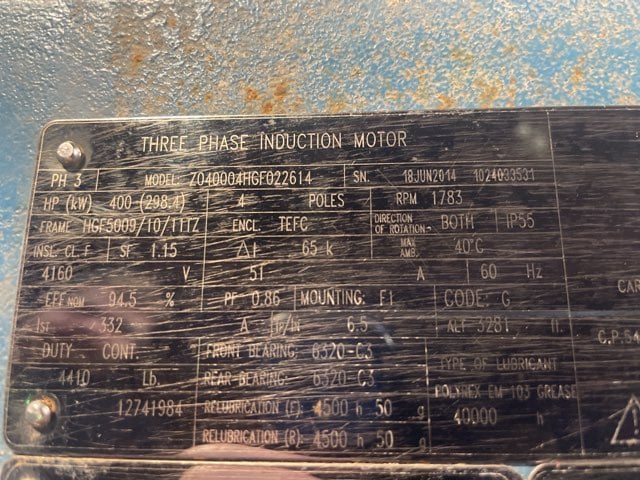 THREE PHASE INDUCTION MOTOR
PH 3 MODEL: Z040004HGF022614 SN. 18JUN2014 1024033531
HP (kW) 400 (298.4) 4 POLES RPM 1783
FRAME HGF5009/10/11TZ ENCL. TEFC DIRECTION OF ROTATION: BOTH IP55
INSL. CL. F SF 1.15 Δt 65 k MAX AMB. 40°C
4160 V 51 A 60 Hz
EFF NOM 94.5 % PF 0.86 MOUNTING: F1 CODE: G CAR
Ist 332 A Ip/In 6.5 ALT 3281 C.P.54
DUTY CONT. FRONT BEARING: 6320-C3 TYPE OF LUBRICANT
4410 Lb. REAR BEARING: 6320-C3 POLYREX EM 103 GREASE
12741984 RELUBRICATION (F): 4500 h 50 g 40000 h
RELUBRICATION (R): 4500 h 50 g